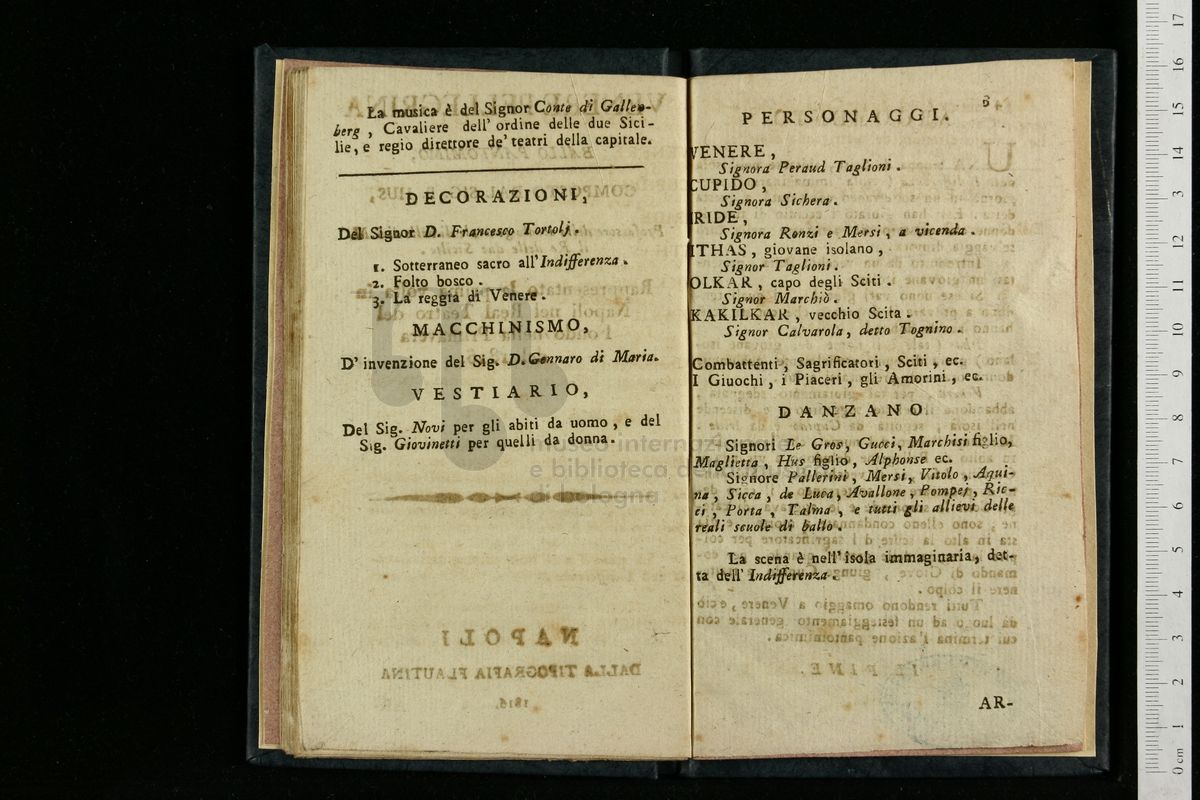 La musica è del Signor Conte di Gallen-
berg, Cavaliere dell' ordine delle due Sici-
lie, e regio direttore de' teatri della capitale.
DECORAZIONI,
Del Signor D. Francesco Tortolj.
1. Sotterraneo sacro all' Indifferenza.
2. Folto bosco.
3. La reggia di Venere.
MACCHINISMO,
D' invenzione del Sig. D. Gennaro di Maria.
VESTIARIO,
Del Sig. Novi per gli abiti da uomo, e del
Sig. Giovinetti per quelli da donna.
museo internazionale
e biblioteca della
di bologna
NAPOLI
DALLA TIPOGRAFIA FLAUTINA
1816.
3
PERSONAGGI.
VENERE,
Signora Peraud Taglioni.
CUPIDO,
Signora Sichera.
IRIDE,
Signora Ronzi e Mersi, a vicenda.
ITHAS, giovane isolano,
Signor Taglioni.
OLKAR, capo degli Sciti.
Signor Marchiò.
KAKILKAR, vecchio Scita.
Signor Calvarola, detto Tognino.
Combattenti, Sagrificatori, Sciti, ec.
I Giuochi, i Piaceri, gli Amorini, ec.
DANZANO
Signori Le Gros, Gucci, Marchisi figlio,
Maglietta, Hus figlio, Alphonse ec.
Signore Pallerini, Mersi, Vitolo, Aqui-
na, Sicca, de Luca, Avallone, Pompej, Ric-
ci, Porta, Talma, e tutti gli allievi delle
reali scuole di ballo.
La scena è nell' isola immaginaria, det-
ta dell' Indifferenza.
AR-
0 cm 1 2 3 4 5 6 7 8 9 10 11 12 13 14 15 16 17